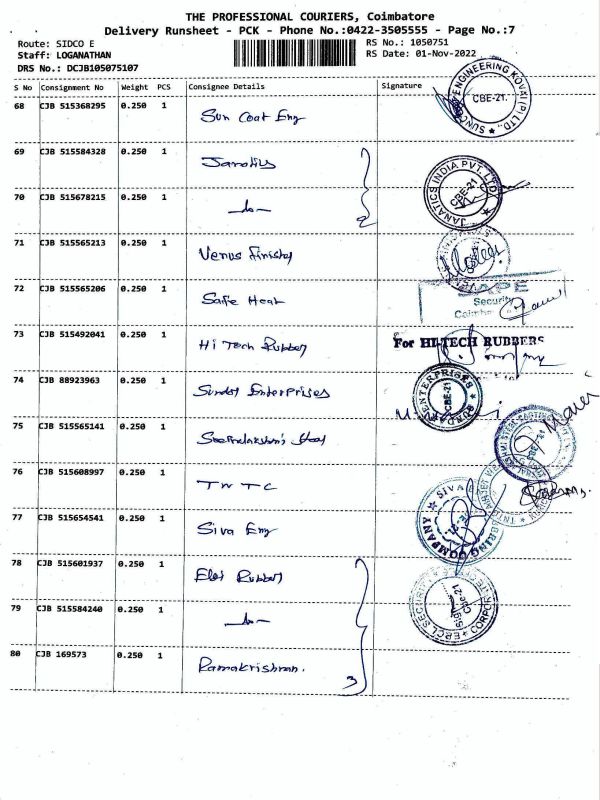 THE PROFESSIONAL COURIERS, Coimbatore
Delivery Runsheet - PCK - Phone No.:0422-3505555 - Page No.:7
Route: SIDCO E
RS No.: 1050751
Staff: LOGANATHAN
RS Date: 01-Nov-2022
DRS No.: DCJB105075107
S No Consignment No Weight PCS Consignee Details Signature
68 CJB 515368295 0.250 1 Sun Coat Eng
SUNCOAT ENGINEERING KOVAI (P) LTD., CBE-21.
69 CJB 515584328 0.250 1 Janatics
JANATICS INDIA PVT. LTD. CBE-21
70 CJB 515678215 0.250 1 —do—
2
71 CJB 515565213 0.250 1 Venus
72 CJB 515565206 0.250 1 Safe Heat
Security
73 CJB 515492041 0.250 1 Hi Tech Rubber
For HI-TECH RUBBERS
74 CJB 88923963 0.250 1 Sundar Enterprises
ENTERPRISES CBE-21
75 CJB 515565141 0.250 1
76 CJB 515608997 0.250 1 TNTC
77 CJB 515654541 0.250 1 Siva Eng
SIVA COMPANY
78 CJB 515601937 0.250 1 Rubber
79 CJB 515584240 0.250 1 —do—
CORPORATE
80 CJB 169573 0.250 1 Ramakrishnan.
3